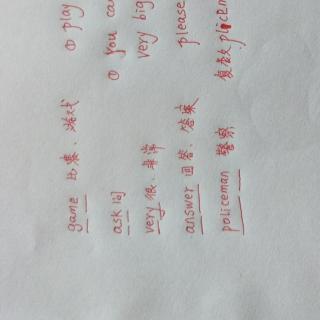 game 比赛、游戏 ① play
ask 问 ① you ca
very 很、非常 very big
answer 回答、答案 please
policeman 警察 复数 plicem